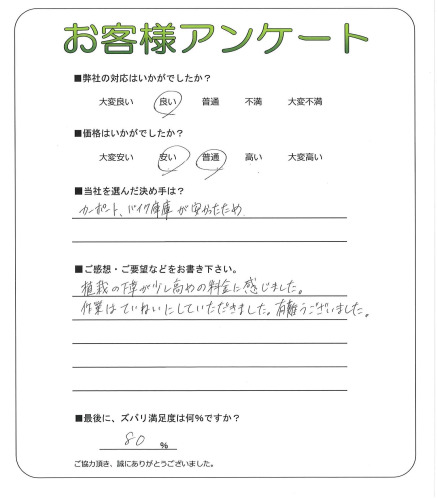 お客様アンケート
■弊社の対応はいかがでしたか？
大変良い 良い 普通 不満 大変不満
■価格はいかがでしたか？
大変安い 安い 普通 高い 大変高い
■当社を選んだ決め手は？
カーポート、バイク車庫が安かったため
■ご感想・ご要望などをお書き下さい。
植栽の下草が少し高めの料金に感じました。
作業はていねいにしていただきました。有難うございました。
■最後に、ズバリ満足度は何％ですか？
80 ％
ご協力頂き、誠にありがとうございました。